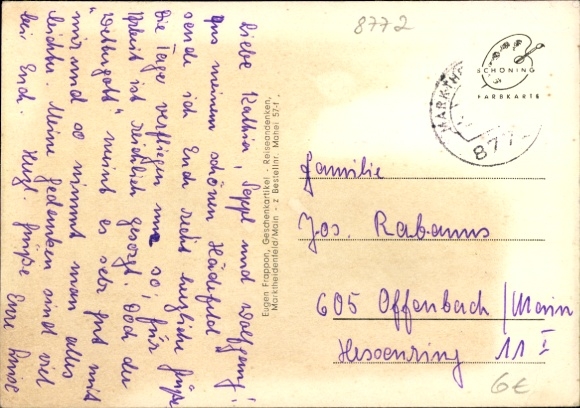 Liebe Kathia, Seppl und Wolfgang!
Aus meinem schönen Hädefeld
sende ich Euch recht herzliche Grüße
Die Tage verfliegen nur so, für
Arbeit ist reichlich gesorgt. Doch der
"Wettergott" meint es sehr gut mit
mir und so nimmt man alles
leichter. Meine Gedanken sind viel
bei Euch. Herzl. Grüße Eure
Eugen Frappon, Geschenkartikel - Reiseandenken,
Marktheidenfeld/Main - z Bestellnr. Mahei 57-f
8772
SCHÖNING
FARBKARTE
MARKTHE
877
Familie
Jos. Rabanus
605 Offenbach/Main
Hessenring 11 I
6€